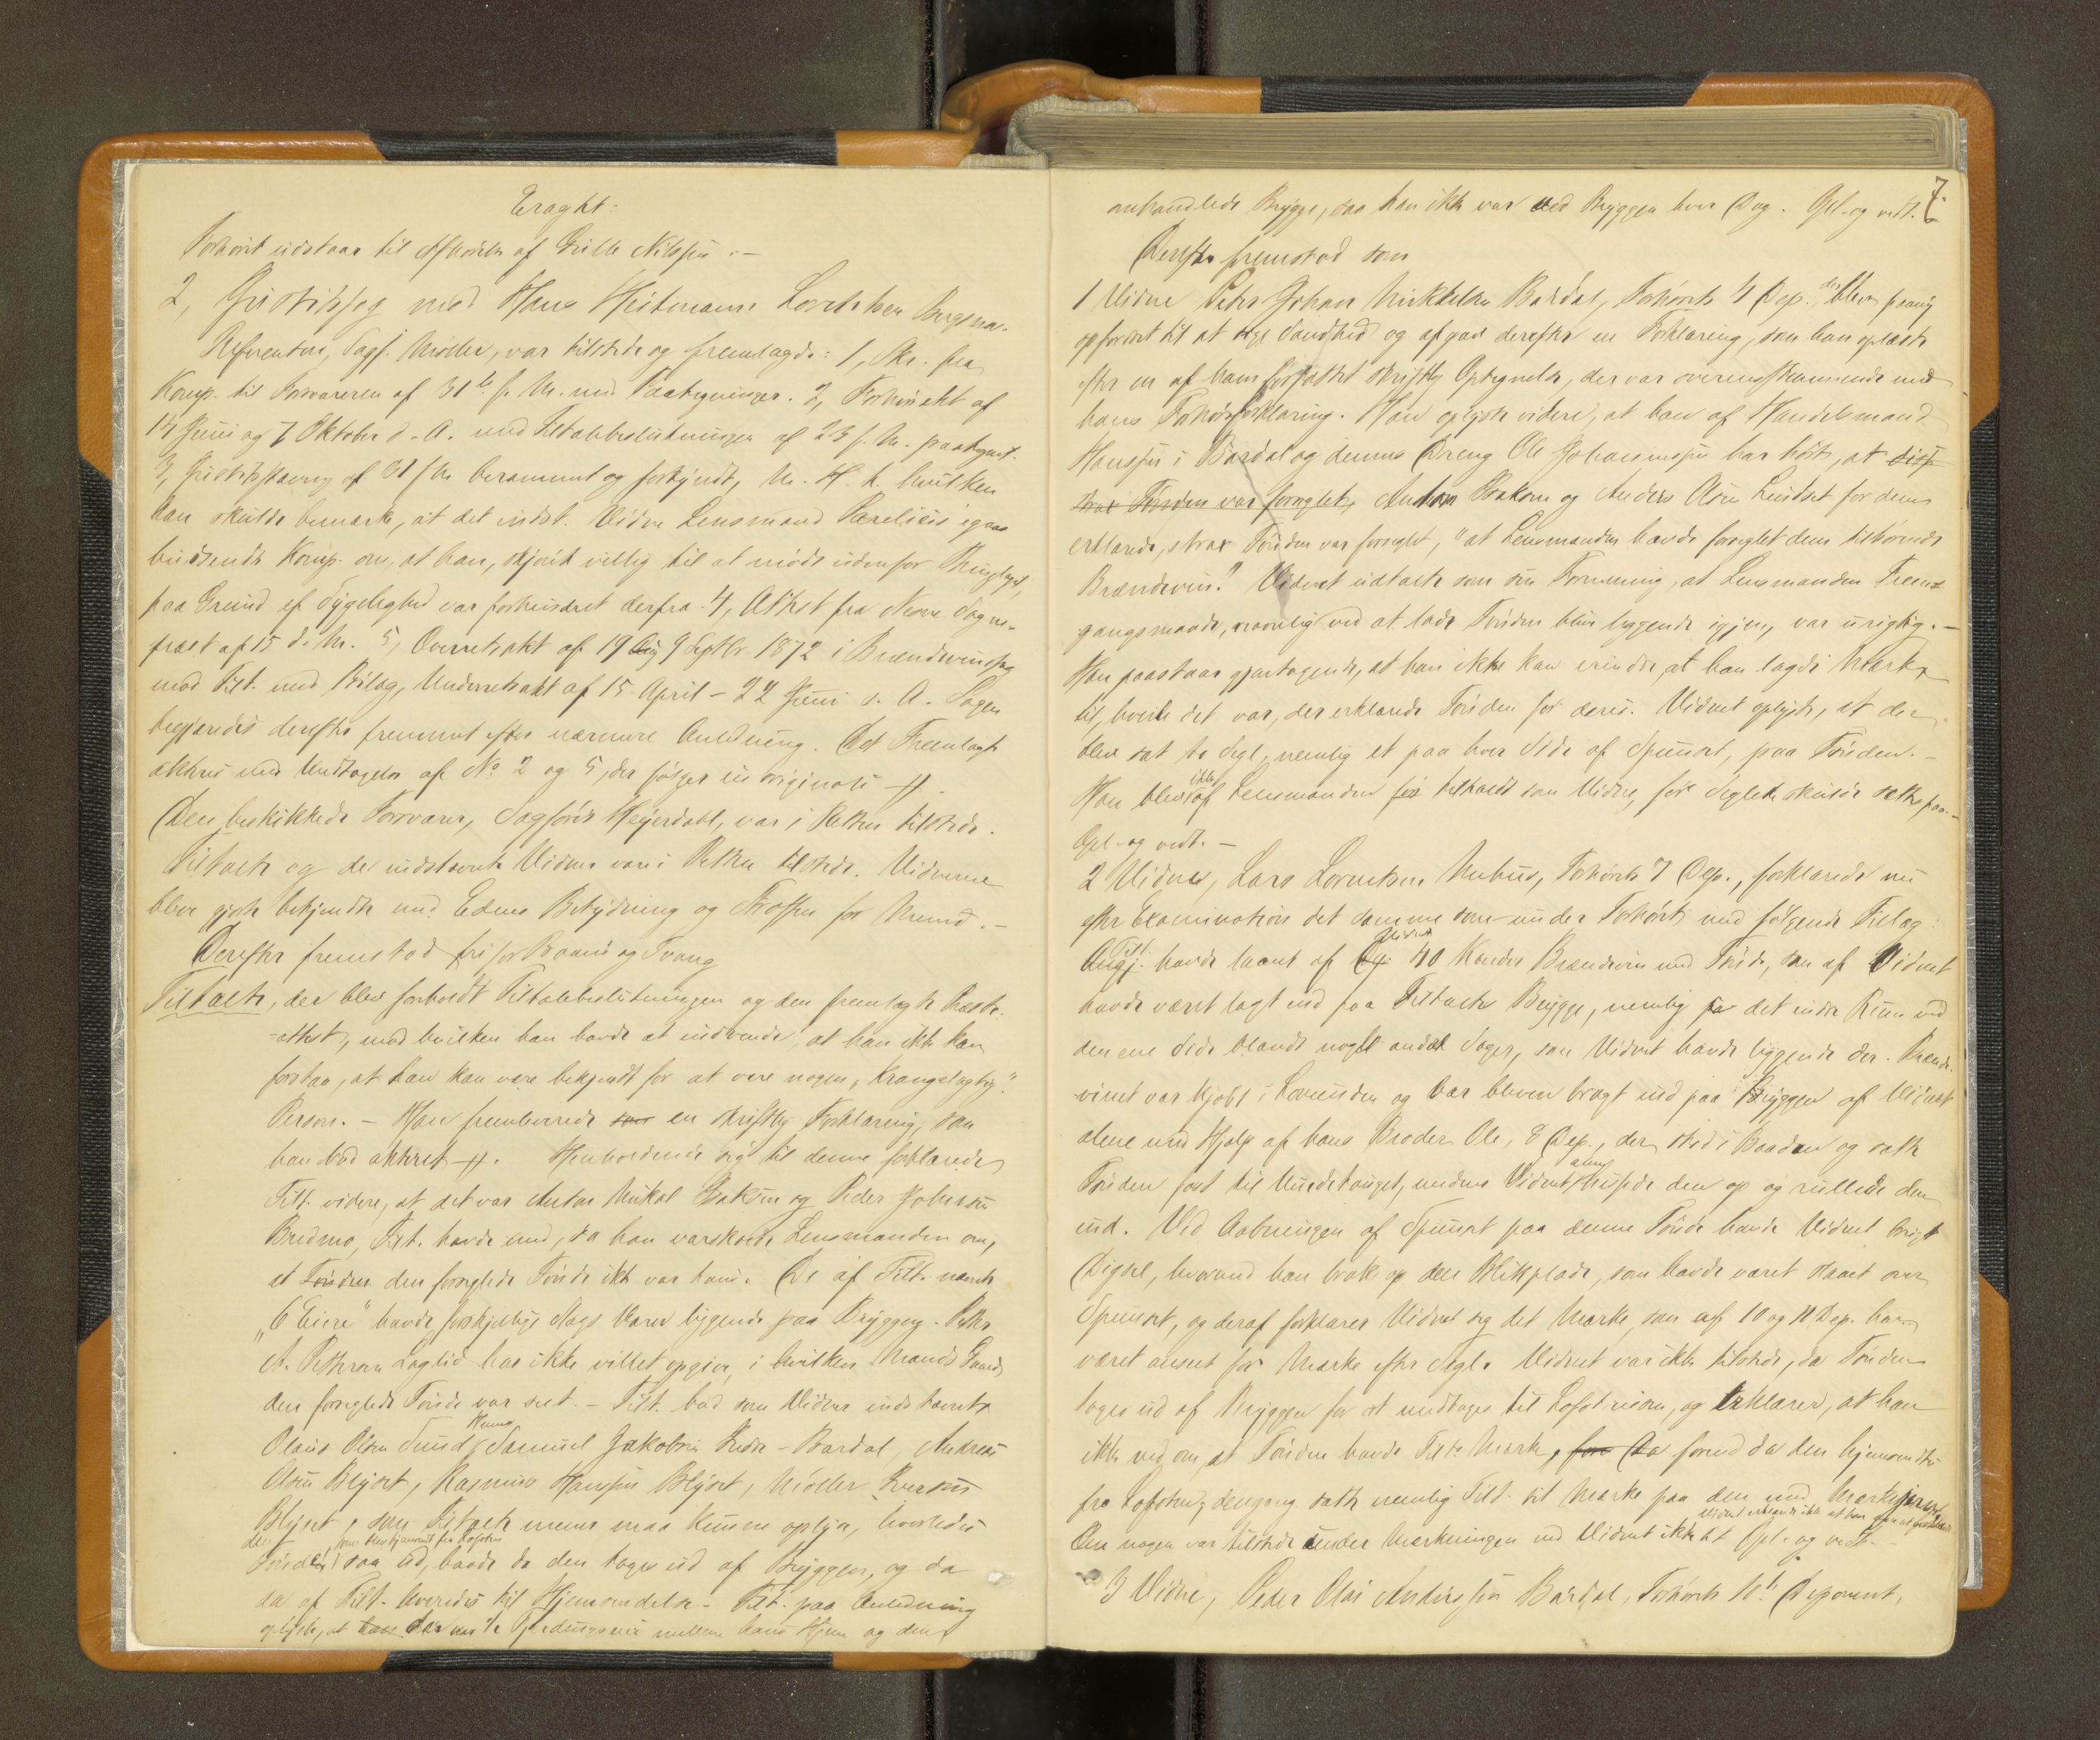 Eragtet:
Forhøret udstaar til Afhørelse af Grille Nilssen :-
2, Justitssag mod Hans Heitmann Lorentsen Bugsna.
Referenten, Sagf. Møller, var tilstede og fremlagde: 1, Skr. fra
Konp. til Forsvareren af 31te f. M. med Paategninger. 2, Forhørsakt af
14 Juni og 7 Oktober d. A. med Tiltalebeslutningen af 23 f. M. paategnet.
3, Justitsstævning af 31 f M berammet og forkyndt, M. H. t. hvilken
han skulde bemærke, at det indst. Vidne Lensmand Parelius igaar
budsendte Konp. om, at han, skjønt villig til at møde udenfor Thinglaget,
paa Grund af Sygelighed var forhindret derfra. 4, Attest fra Nesne Sogne-
præst af 15 d. M. 5, Overretsakt af 19 Aug 9 Septbr. 1872 i Brændevinssag
mod Tilt. med Bilag, Underretsakt af 15 April - 22 Juni s. A. Sagen
begjæredes derefter fremmet efter nærmere Anledning. Det Fremlagte
akteres med Undtagelse af No 2 og 5, der følger in originali #.
Den beskikkede Forsvarer, Sagfører Heyerdahl, var i Retten tilstede.
Tiltalte og de indstævnte Vidner vare i Retten tilstede. Vidnerne
blev gjorte bekjendte med Edens Betydning og Straffen for Meened. -
Derefter fremstod fri for Baand og Tvang
Tiltalte, der blev foreholdt Tiltalebeslutningen og den fremlagte Præste-
=attest, mod hvilken han havde at indvende, at han ikke kan
forstaa, at han kan være bekjendt for at være nogen "krangelagtig"
Person. - Han fremleverede som en skriftlig Forklaring, som
han bad akteret #. Henholdende sig til denne forklarede
Tilt. videre, at det var Anton Mikal Isaksen og Peder Johnsen
Bredmo, Tilt. havde med, da han varskoede Lensmanden om,
at Tønden den forseglede Tønde ikke var hans. De af Tilt. nævnte
"6 Eiere" havde forskjellige Slags Varer liggende paa Bryggen. Peter
A. Pettersen Laglid har ikke villet opgive, i hvilken Mands Gaard
den forseglede Tønde var seet. - Tilt. bad som Vidner indstævnte
Olaus Olsen Sund, Samuel Jakobsen Indre-Bardal, Andreas
Olsen Blijset, Rasmus Hanssen Blijset, Møller Iversen
Blijset, som Tiltalte mener maa kunne oplyse, hvorledes
Tønden saa ud, baade da den toges ud af Bryggen, og da
da af Tilt. leveredes til Hjemsendelse. - Tilt. paa Anledning
oplyste, at han der var 1/4 Fjerdingsvei mellem hans Hjem og den
7.
omhandlede Brygge, saa han ikke var ved Bryggen hver Dag. Opl. og vedt.
Derefter fremstod som
1 Vidne Peter Johan Mikkelsen Bardal, Forhørets 4 Dep. der blev paany
opfordret til at sige Sandhed og afgav derefter en Forklaring, som han oplæste
efter en af ham forfattet skriftlig Optegnelse, der var overensstemmende med
hans Forhørsforklaring. Han oplyste videre, at han af Handelsmand
Hanssen i Bardal og dennes Dreng Ole Johannessen har hørt, at disse
strax Tønden var forseglet, Anton Isaksen og Anders Olsen Leinset for dem
erklærede, strax Tønden var forseglet, "at Lensmanden havde forseglet dem tilhørende
Brændevin." Vidnet udtalte som sin Formening, at Lensmanden Frem-
gangsmaade, navnlig ved at lade Tønden blive liggende igjen, var urigtig. -
Han paastaar gjentagende, at han ikke kan erindre, at han lagde Mærke
til, hvem det var, der erklærede Tønden for deres. Vidnet oplyste, at der
blev sat to Segl, nemlig et paa hver Side af Spunset, paa Tønden. -
Han blev ikke af Lensmanden for tilkaldt som Vidne, før Seglet skulde sættes paa. -
Opl. og vedt. -
2 Vidne, Lars Lorentsen Nubus, Forhørets 7 Dep., forklarede nu
efter Examination det samme som under Forhøret med følgende Tillæg:
Tilt. havde laant af Vidnet 40 Kander Brændevin med Tønde, som af Vidnet
havde været lagt ind paa Tiltaltes Brygge, nemlig paa det indre Rum ved
den ene Side blandt noget andet Sager, som Vidnet havde liggende der. Brænde-
vinet var kjøbt i Lovunden og var bleven bragt ind paa Bryggen af Vidnet
alene med Hjælp af hans Broder Ole, 8 Dep., der stod i Baaden og satte
Tønden fast til Vindetouget, medens Vidnet alene heisede den op og rullede den
ind. Ved Aabningen af Spunset paa denne Tønde havde Vidnet brugt
Digsel, hvormed han brak op den Blikplade, som havde været slaaet over
Spunset, og deraf forklarer Vidnet sig det Mærke, som af 10 og 11 Dep. har
været anseet for Mærke efter Segl. Vidnet var ikke tilstede, da Tønden
toges ud af Bryggen for at medtages til Lofotreisen, og erklærer, at han
ikke ved om, at Tønden havde Tilts Mærke, før da forend da den hjemsendtes
fra Lofoten; dengang satte nemlig Tilt. sit Mærke paa den med Mærkejern.
Om nogen var tilstede under Mærkningen ved Vidnet ikke. Opl. og vedt. -
3 Vidne, Peder Olai Anderssen Bardal, Forhørets 10de Deponent,